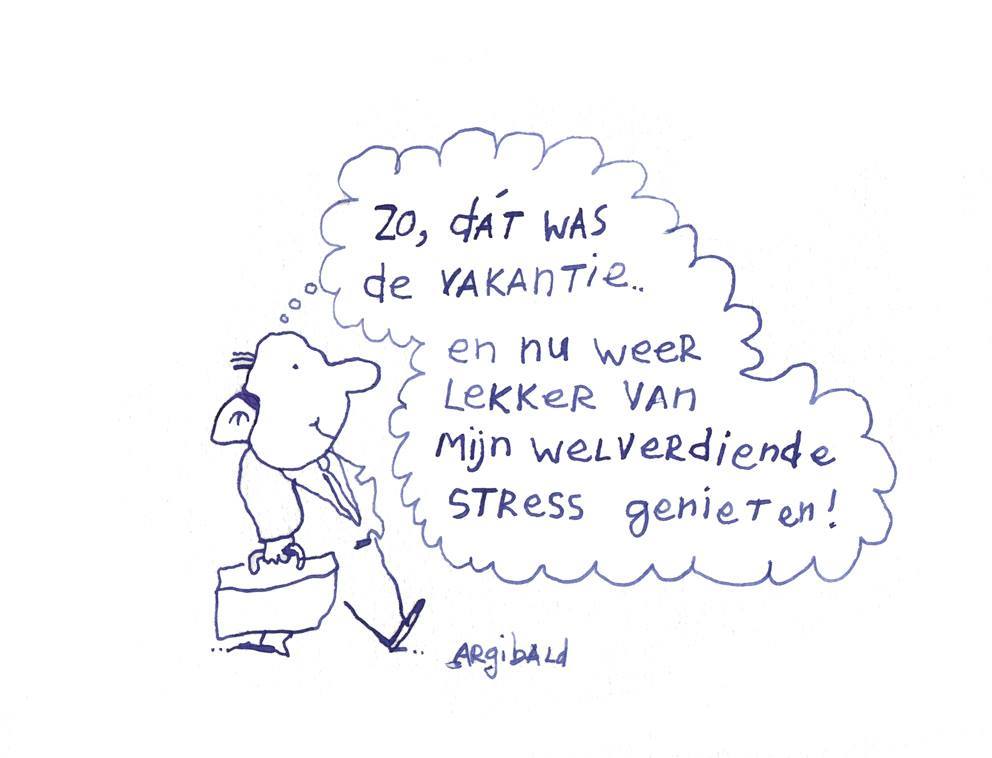 ZO, dÁT WAS
de VAKANTie..
en nu weeR
LeKKeR VAn
Mijn weLVeRdiende
STReSS genieTen!
ARgibALd